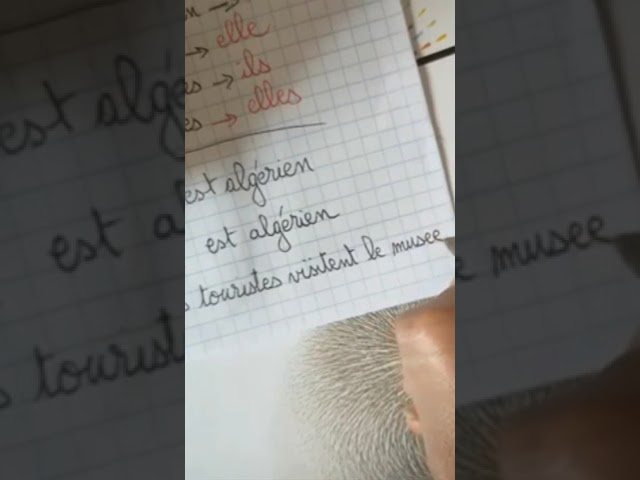 → elle
→ ils
→ elles
est algérien
est algérien
touristes visitent le musee